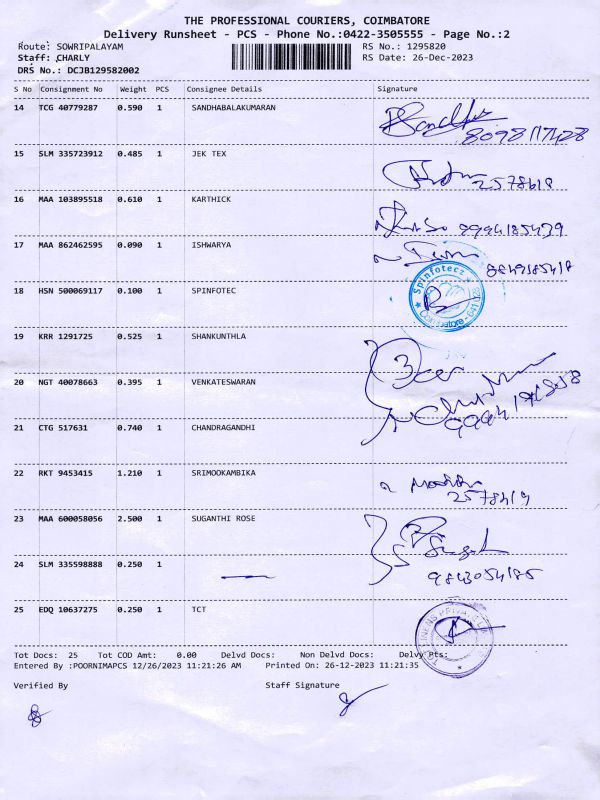 THE PROFESSIONAL COURIERS, COIMBATORE
Delivery Runsheet - PCS - Phone No.:0422-3505555 - Page No.:2
Route: SOWRIPALAYAM RS No.: 1295820
Staff: CHARLY RS Date: 26-Dec-2023
DRS No.: DCJB129582002
S No Consignment No Weight PCS Consignee Details Signature
14 TCG 40779287 0.590 1 SANDHABALAKUMARAN
15 SLM 335723912 0.485 1 JEK TEX
2578618
16 MAA 103895518 0.610 1 KARTHICK
9994185439
17 MAA 862462595 0.090 1 ISHWARYA
18 HSN 500069117 0.100 1 SPINFOTEC
Spinfotecz
Coimbatore - 641 028
19 KRR 1291725 0.525 1 SHANKUNTHLA
20 NGT 40078663 0.395 1 VENKATESWARAN
21 CTG 517631 0.740 1 CHANDRAGANDHI
22 RKT 9453415 1.210 1 SRIMOOKAMBIKA
23 MAA 600058056 2.500 1 SUGANTHI ROSE
24 SLM 335598888 0.250 1
9843054185
25 EDQ 10637275 0.250 1 TCT
Tot Docs: 25 Tot COD Amt: 0.00 Delvd Docs: Non Delvd Docs: Delvy Pts:
Entered By :POORNIMAPCS 12/26/2023 11:21:26 AM Printed On: 26-12-2023 11:21:35
Verified By Staff Signature